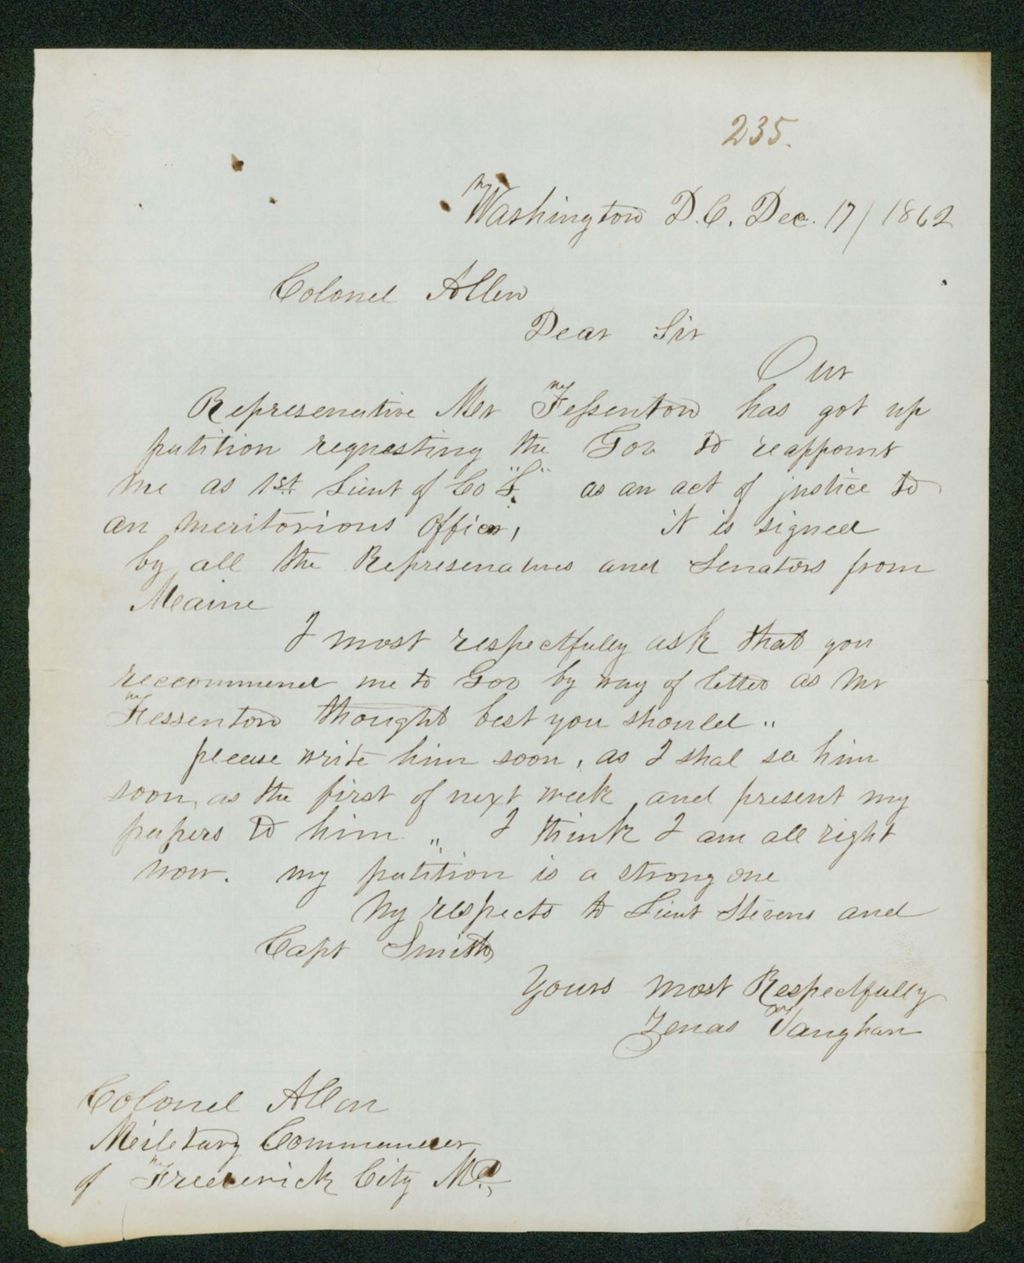 235.
Washington D.C. Dec. 17/1862
Colonel Allen
Dear Sir
Our
Represenative Mr Fessenton has got up
patition requesting the Gov to reappoint
me as 1st Lieut of Co "F" as an act of justice to
an meritorious officer, it is signed
by all the Represenatives and Senators from
Maine
I most respectfully ask that you
reccommend me to Gov by way of letter as Mr
Fessenton thought best you should "
please write him soon, as I shal see him
soon, as the first of next week and present my
papers to him " I think I am all right
now. my patition is a strong one
My respects to Lieut Stevens and
Capt Smith
Yours most Respectfully
Zenas Vaughan
Colonel Allen
Miletary Commander
of Frederick City Md.